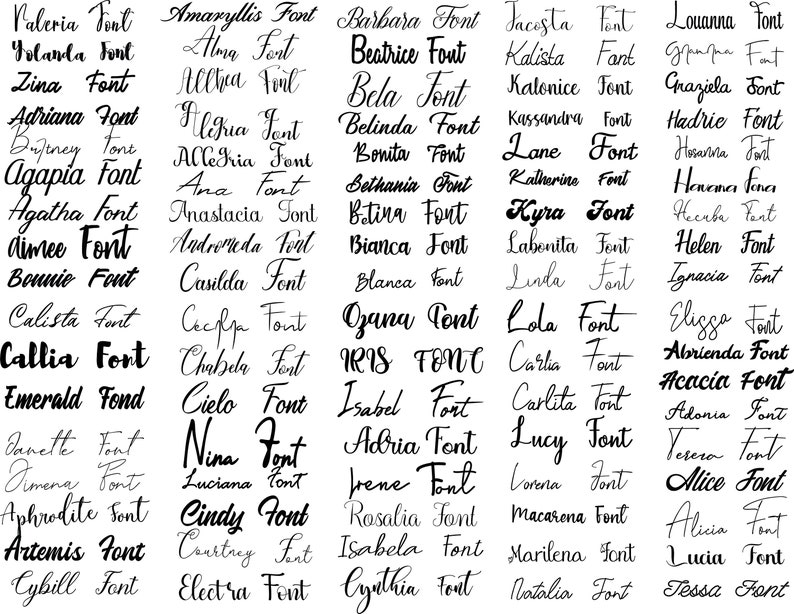 Valeria Font
Yolanda Font
Zina Font
Adriana Font
Britney Font
Agapia Font
Agatha Font
aimee Font
Bonnie Font
Calista Font
Callia Font
Emerald Fond
Janette Font
Jimena Font
Aphrodite Font
Artemis Font
Cybill Font
Amaryllis Font
Alma Font
Allthea Font
Alegria Font
Allegria Font
Ana Font
Anastacia Font
Andromeda Font
Casilda Font
Font
Chabela Font
Cielo Font
Nina Font
Luciana Font
Cindy Font
Courtney Font
Electra Font
Barbara Font
Beatrice Font
Bela Font
Belinda Font
Bonita Font
Bethania Font
Betina Font
Bianca Font
Blanca Font
Ozana Font
IRIS FONT
Isabel Font
Adria Font
Irene Font
Rosalia Font
Isabela Font
Cynthia Font
Jacosta Font
Kalista Font
Kalonice Font
Kassandra Font
Lane Font
Katherine Font
Kyra Font
Labonita Font
Linda Font
Lola Font
Carlia Font
Carlita Font
Lucy Font
Lorena Font
Macarena Font
Marilena Font
Natalia Font
Louanna Font
Font
Graziela Font
Hadrie Font
Hosanna Font
Havana Font
Hecuba Font
Helen Font
Ignacia Font
Elissa Font
Abrienda Font
Acacia Font
Adonia Font
Tereza Font
Alice Font
Alicia Font
Lucia Font
Tessa Font